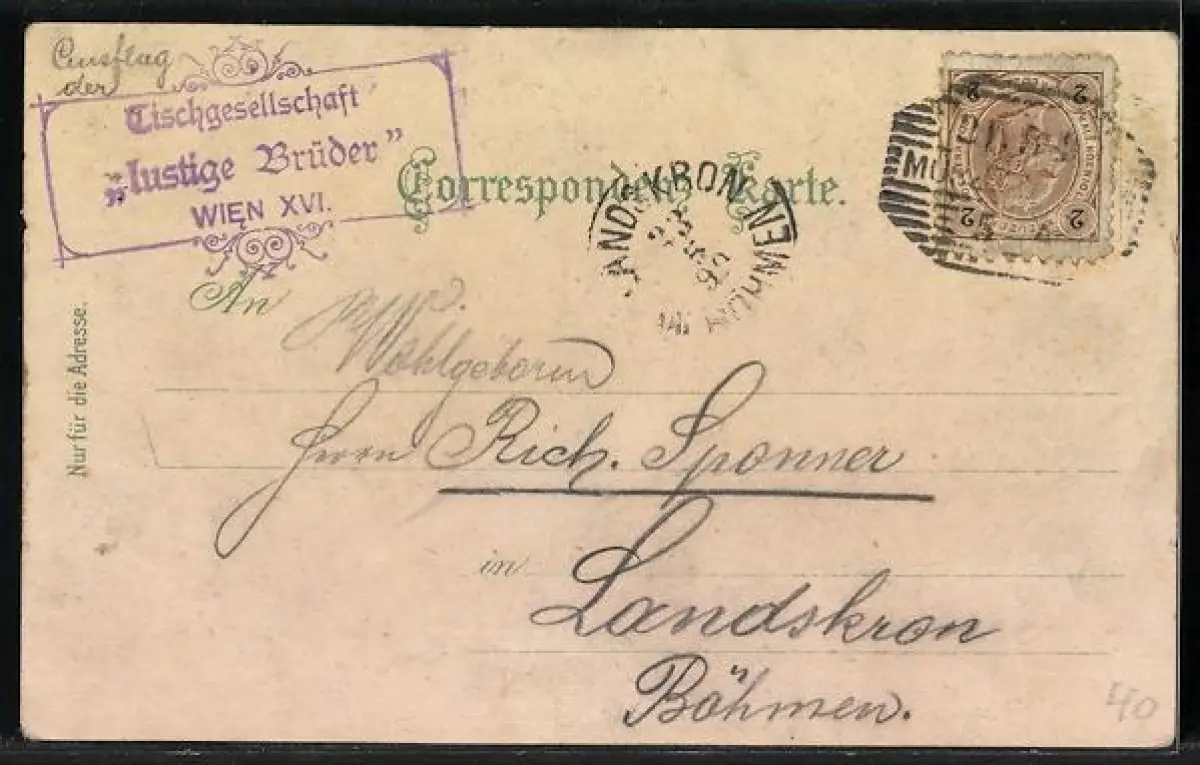 Ausflug
der
Tischgesellschaft
„lustige Brüder”
WIEN XVI.
Correspondenz-Karte.
LANDSKRON
2
2
2
2
An
Wohlgeboren
Herrn Rich. Sponner
in
Landskron
Böhmen.
Nur für die Adresse.
40